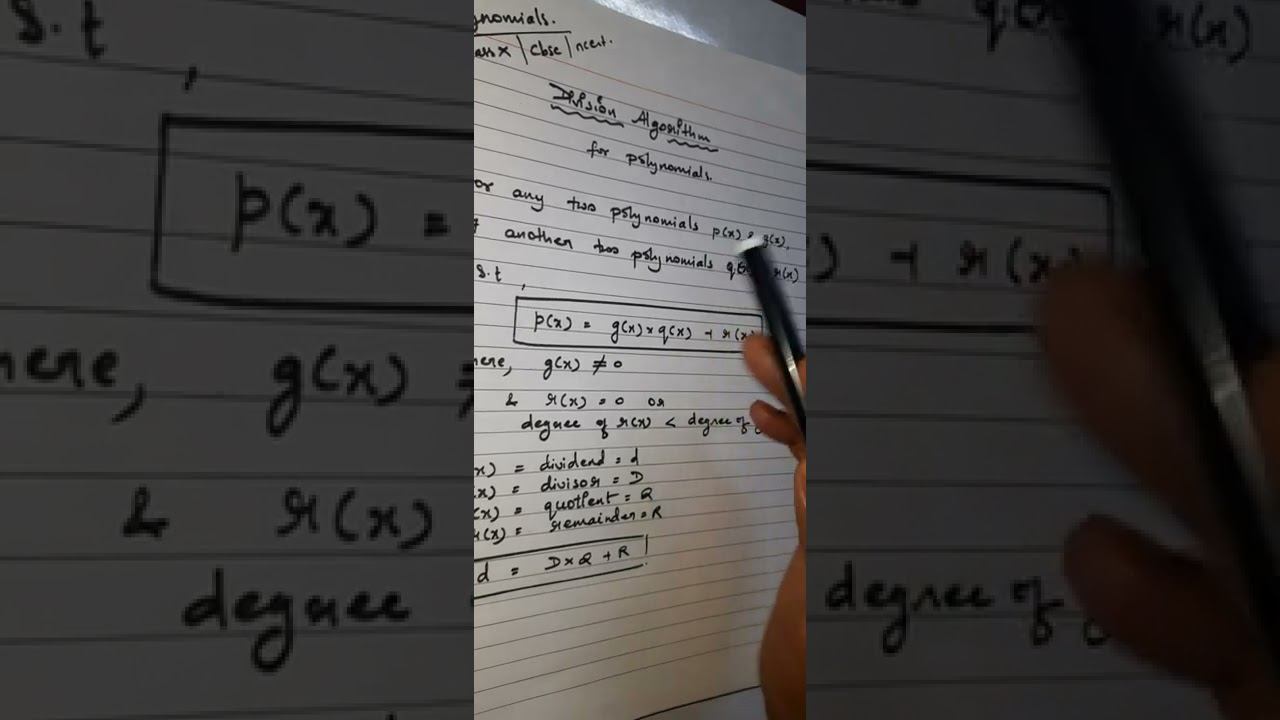 ynomials.
ass X | Cbse | ncert.
Division Algorithm
for polynomials.
or any two polynomials p(x) & g(x),
another two polynomials q(x) r(x)
s.t ,
p(x) = g(x) x q(x) + r(x)
here, g(x) ≠ 0
& r(x) = 0 or
degree of r(x) < degree of g
x) = dividend = d
x) = divisor = D
(x) = quotient = Q
r(x) = remainder = R
d = D x Q + R